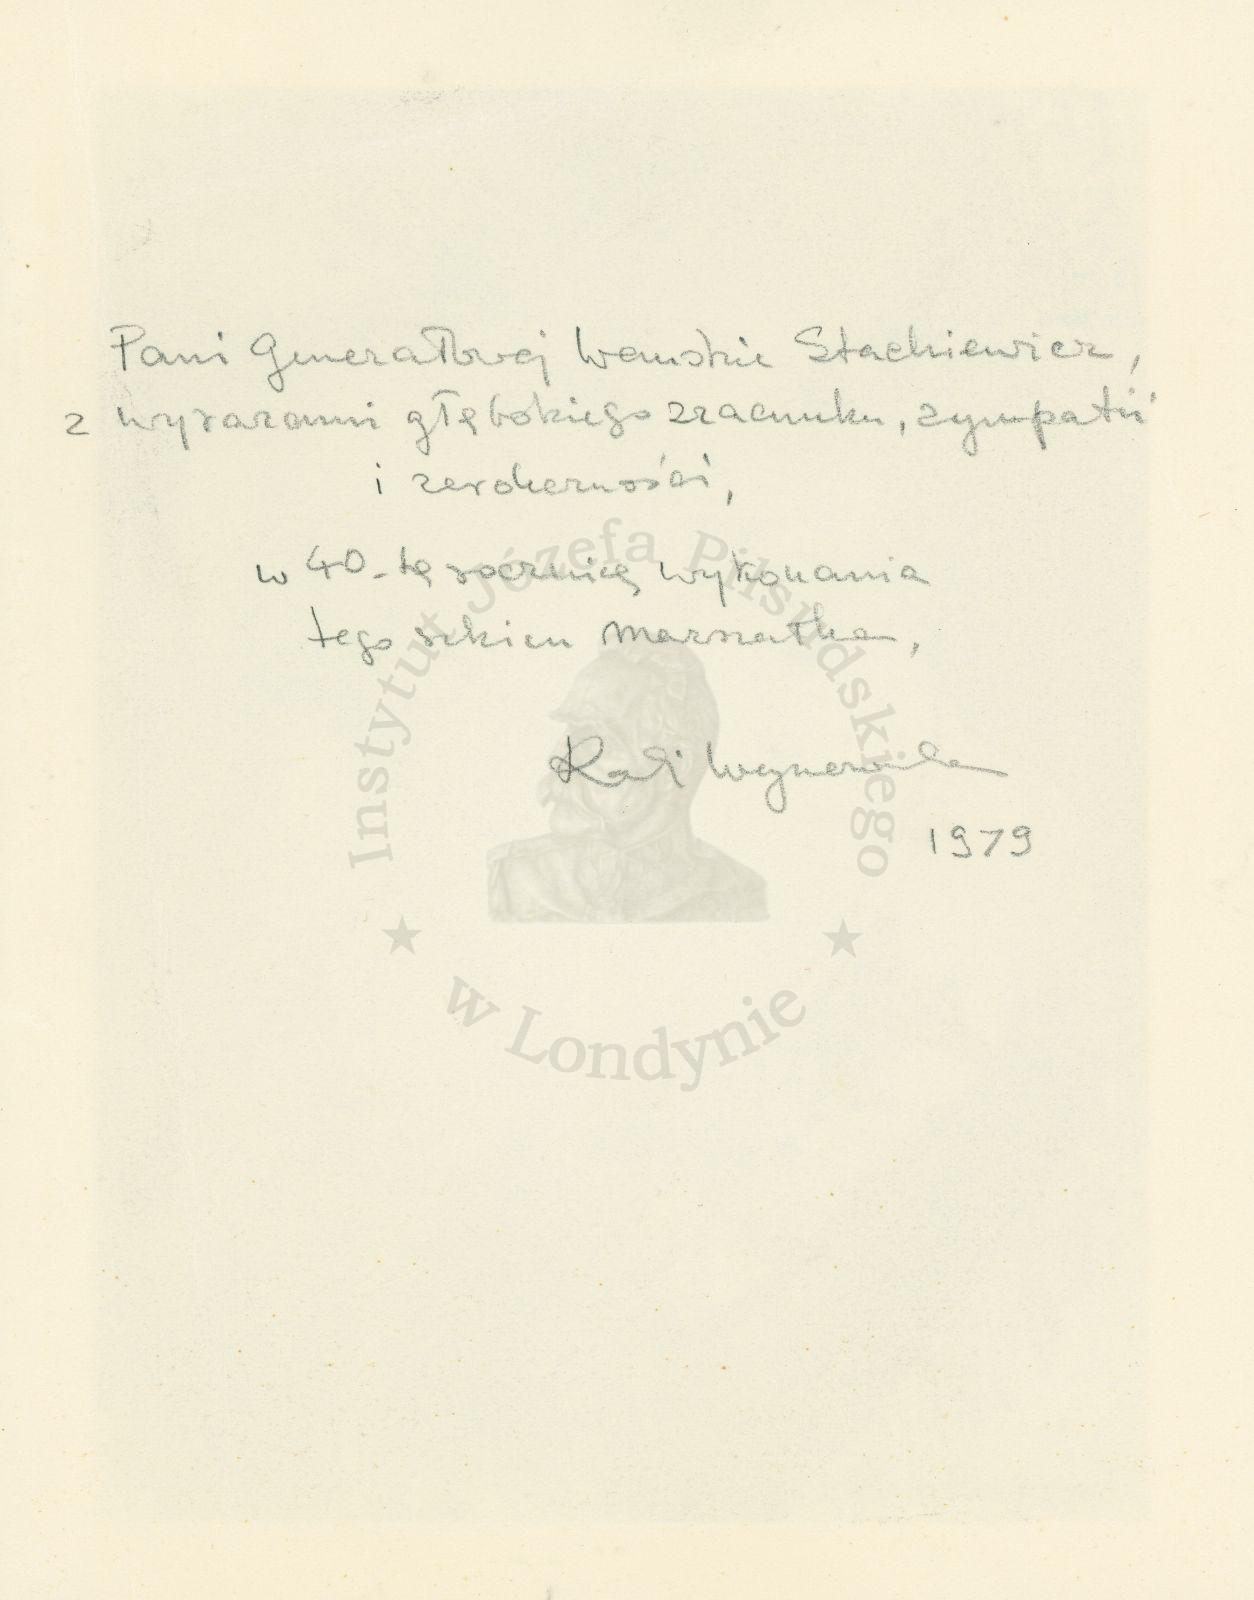 Pani Generałowej Wandzie Stachiewicz,
z wyrazami głębokiego szacunku, sympatii
i serdeczności,
w 40-tą rocznicę wykonania
tego szkicu Marszałka,
1979
Instytut Józefa Piłsudskiego
w Londynie